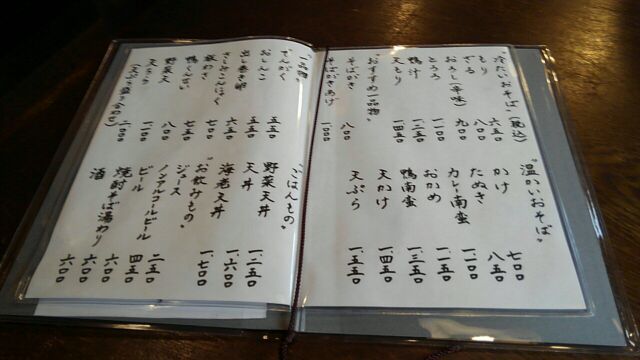 "冷たいおそば"(税込)
もり 六五〇
ざる 八〇〇
おろし(辛味) 九〇〇
とろろ 一、一〇〇
鴨汁 一、二五〇
天もり 一、四五〇
"おすすめ一品物"
そばがき 八〇〇
そばがきあげ 一、〇〇〇
"温かいおそば"
かけ 七〇〇
たぬき 八五〇
カレー南蛮 一、一〇〇
おかめ 一、一五〇
鴨南蛮 一、三五〇
天かけ 一、四五〇
天ぷら 一、五五〇
"一品物"
でんがく 五五〇
おしんこ 五五〇
出し巻玉子 六五〇
さしみこんにゃく 七〇〇
板わさ 七五〇
野菜天 一、一〇〇
天ちら 二、〇〇〇
"ごはんもの"
野菜天丼 一、二五〇
天丼 一、六〇〇
海老天丼 一、七〇〇
"お飲みもの"
ジュース 二五〇
ノンアルコールビール 四五〇
ビール 六〇〇
焼酎そば湯わり 六〇〇
酒 六〇〇